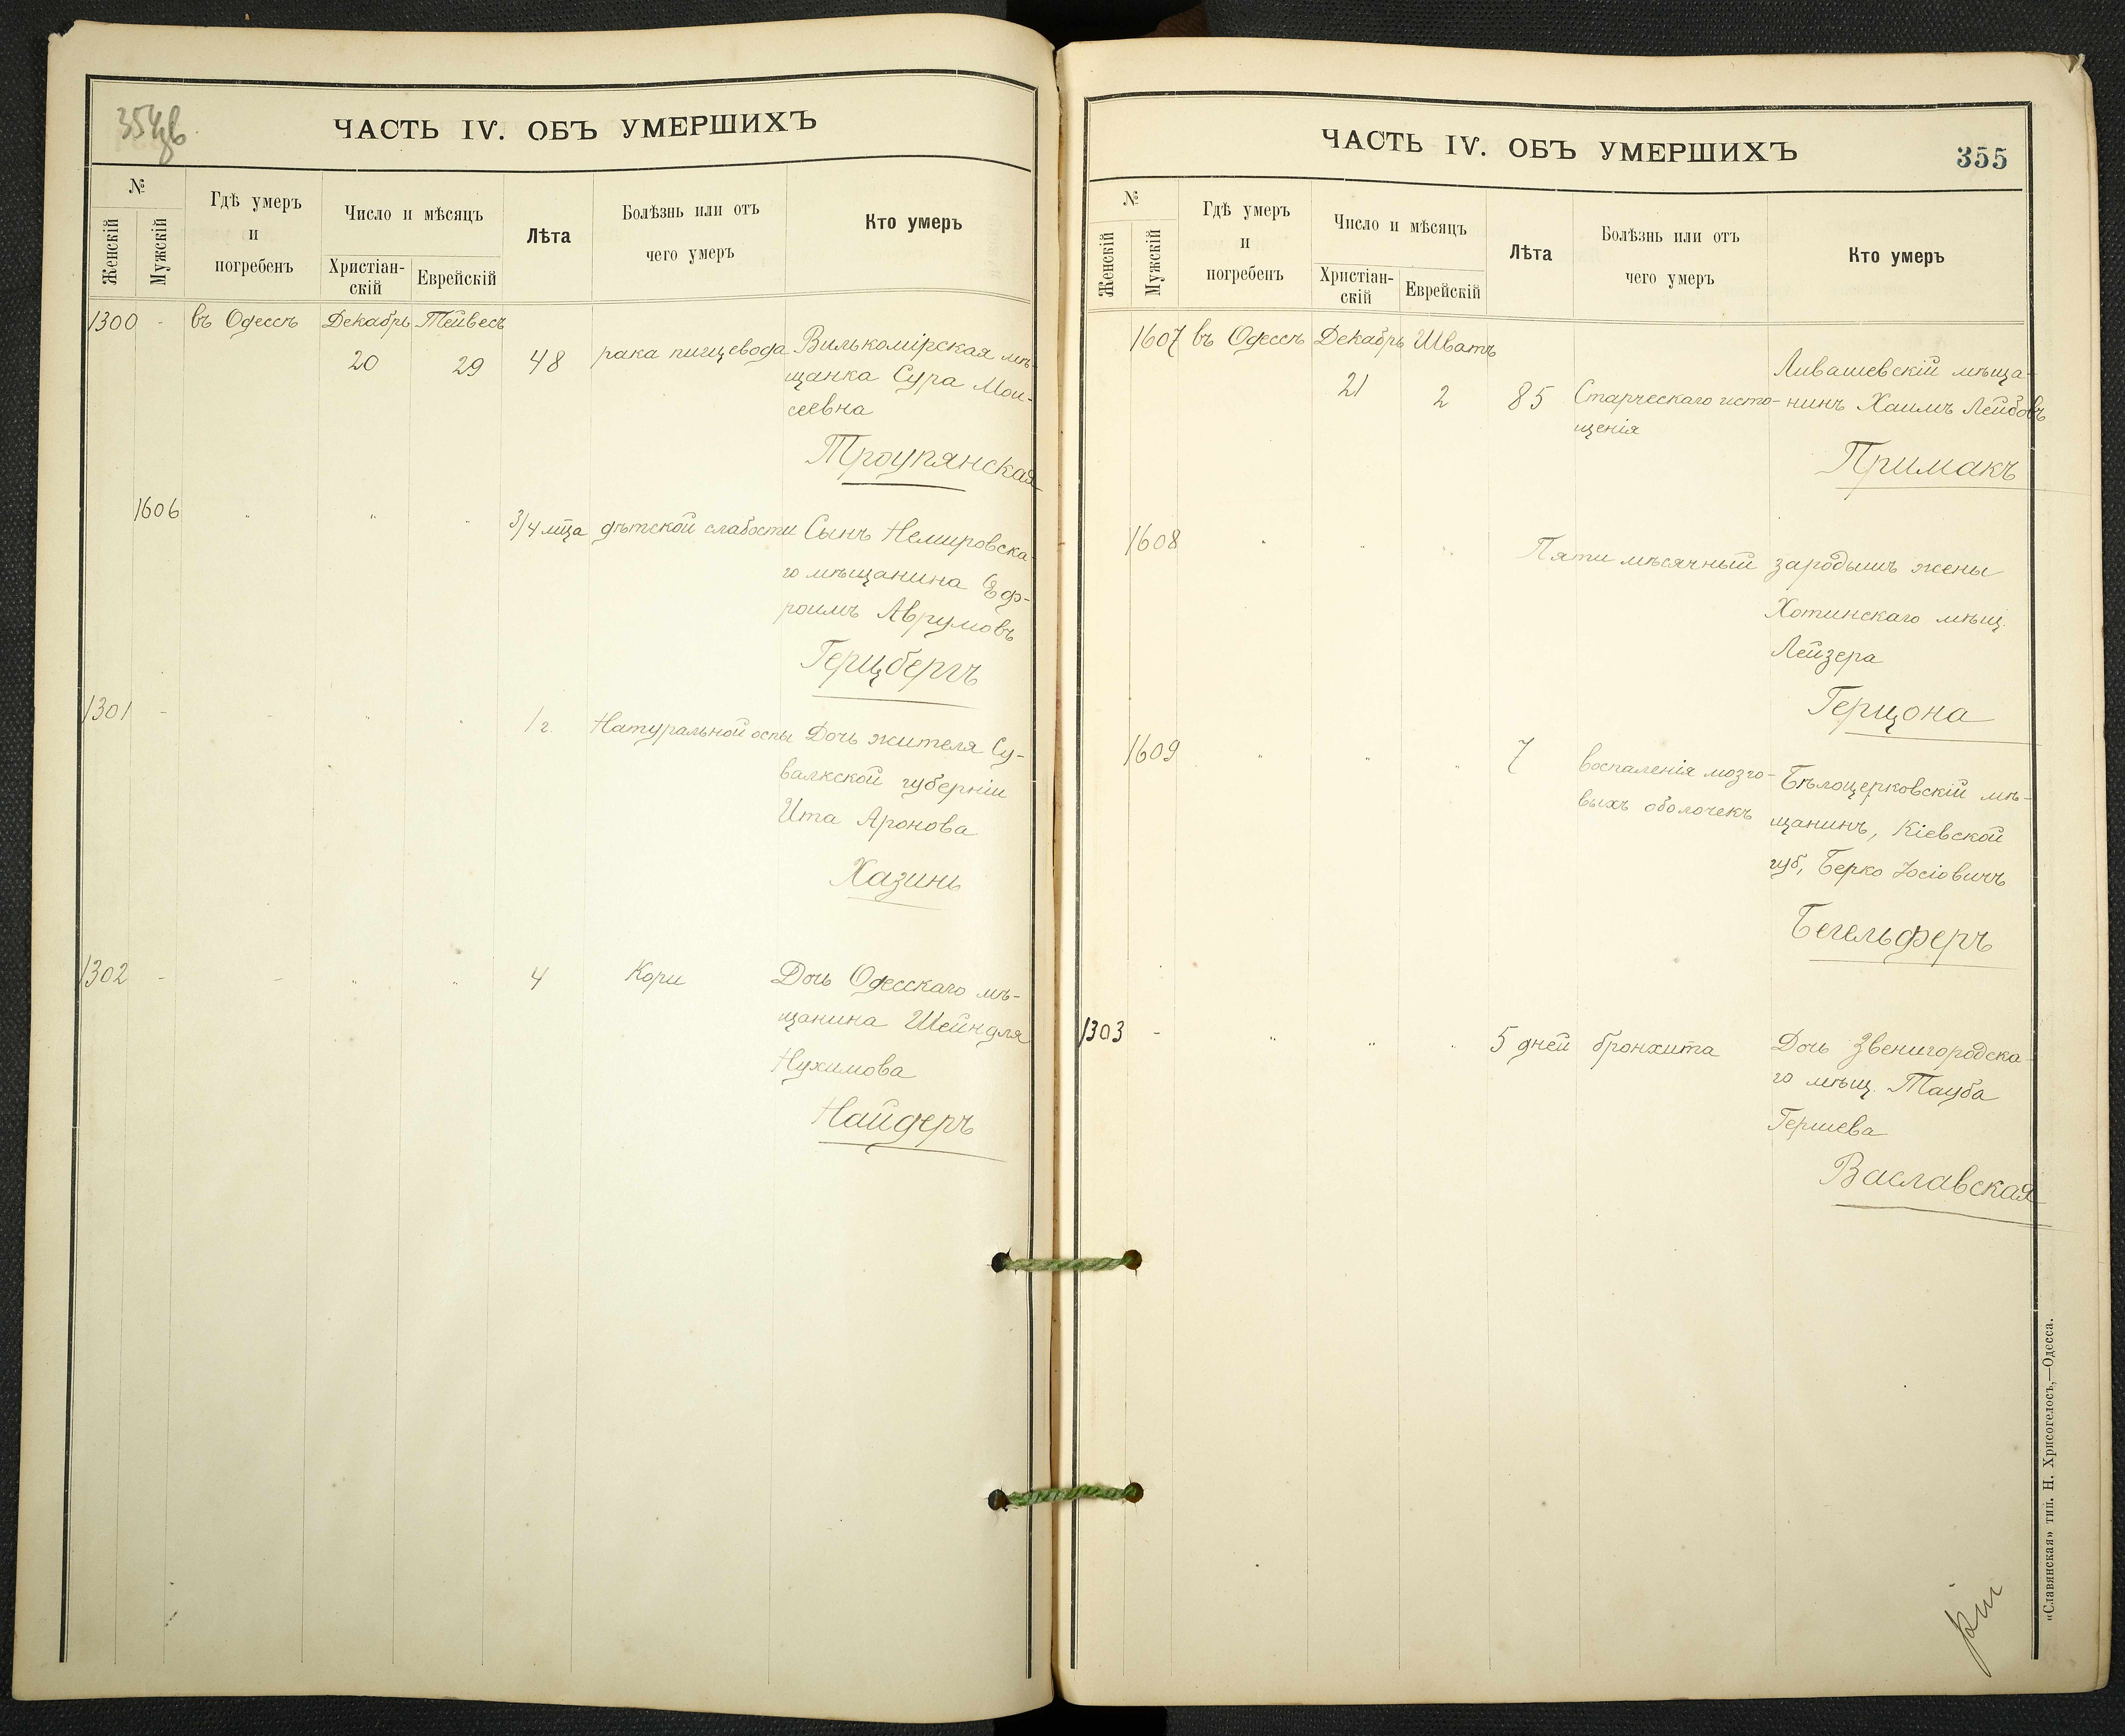 354об.
ЧАСТЬ IV. ОБЪ УМЕРШИХЪ
№
Женскій
Мужскій
Гдѣ умеръ
и
погребенъ
Число и мѣсяцъ
Христіан-
скій
Еврейскій
Лѣта
Болѣзнь или отъ
чего умеръ
Кто умеръ
1300 - въ Одессѣ Декабрь Тейвесъ
20 29 48 рака пищевода Вилькомірская мѣ-
щанка Сура Мои-
сеевна
Троупянская
1606 " " " 3/4 мѣца дѣтской слабости Сынъ Немировска-
го мѣщанина Еф-
роимъ Аврумовъ
Герцбергъ
1301 - - " " 1 г. Натуральной оспы Дочь жителя Су-
валкской губерніи
Ита Аронова
Хазинъ
1302 - - " " 4 Кори Дочь Одесскаго мѣ-
щанина Шейндля
Нухимова
Найдеръ
ЧАСТЬ IV. ОБЪ УМЕРШИХЪ
355
№
Женскій
Мужскій
Гдѣ умеръ
и
погребенъ
Число и мѣсяцъ
Христіан-
скій
Еврейскій
Лѣта
Болѣзнь или отъ
чего умеръ
Кто умеръ
1607 въ Одессѣ Декабрь Шватъ
21 2 85 Старческаго исто-
щенія
Ливашевскій мѣща-
нинъ Хаимъ Лейбовъ
Примакъ
1608 " " " Пяти мѣсячный зародышъ жены
Хотинскаго мѣщ.
Лейзера
Герцона
1609 " " " 7 воспаленія мозго-
выхъ оболочекъ
Бѣлоцерковскій мѣ-
щанинъ, Кіевской
губ, Берко Іосіовичъ
Бегельферъ
1303 - " " " 5 дней бронхита Дочь Звенигородска-
го мѣщ. Тауба
Гершева
Ваславская
«Славянская» тип. Н. Хрисогелосъ,—Одесса.